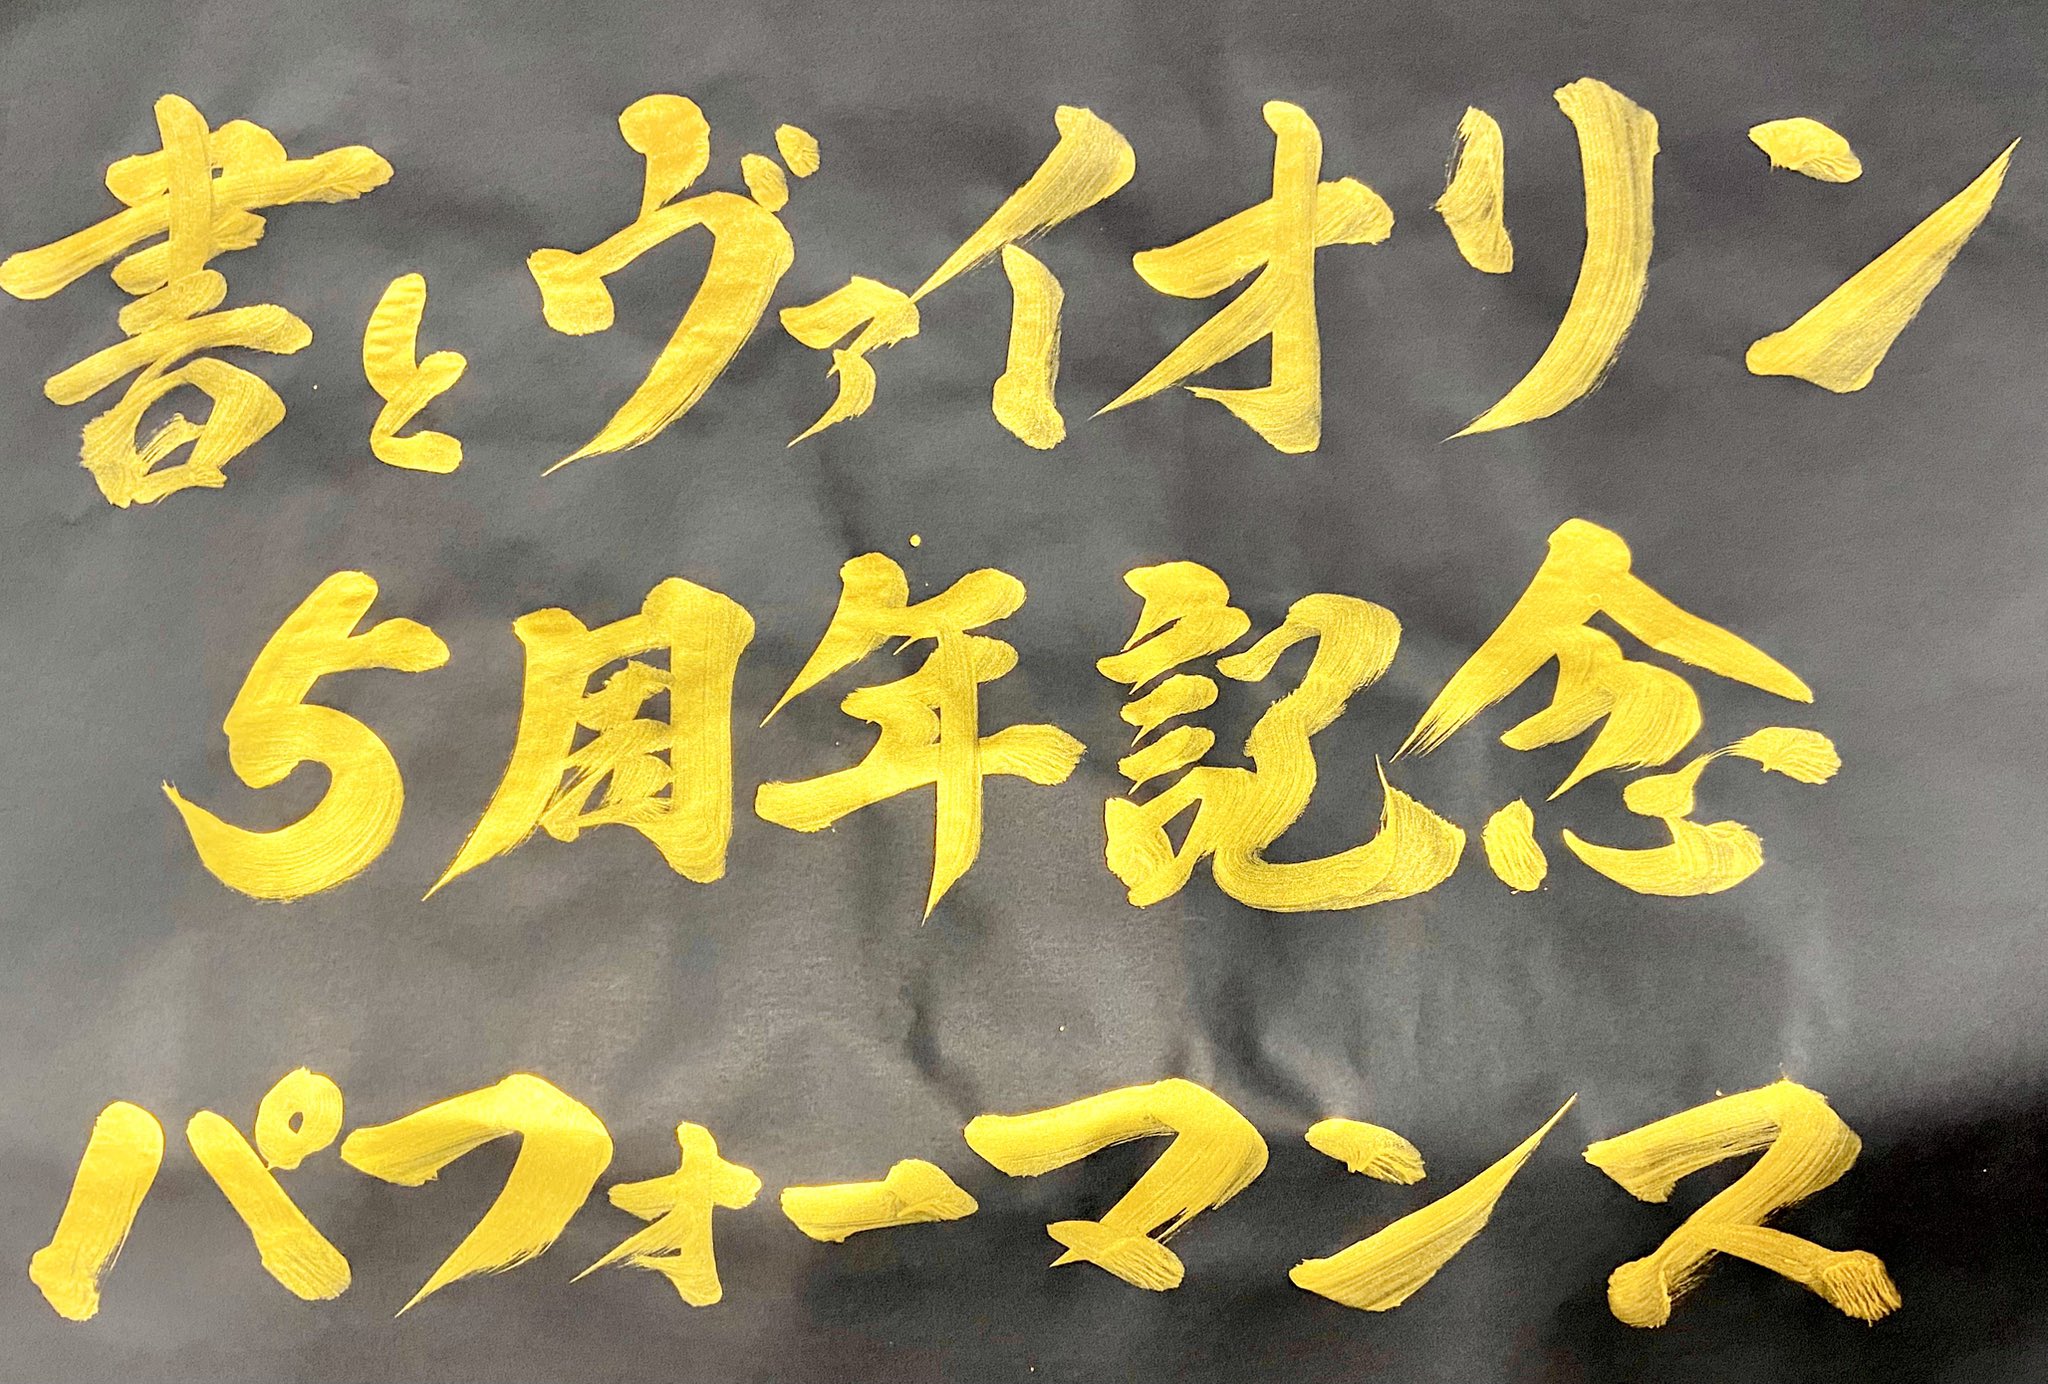 書とヴァイオリン
5周年記念
パフォーマンス